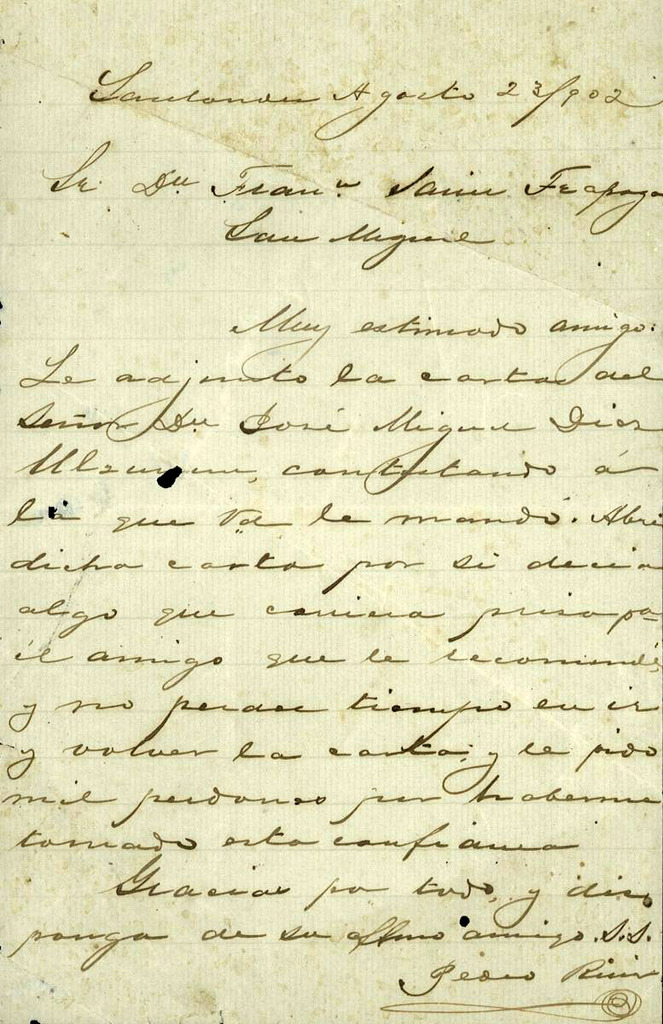 Santander Agosto 23/902
Sr Dn Franco Sainz Trapaga
San Miguel
Muy estimado amigo:
Le adjunto la carta del
Señor Dn José Miguel Diez
contestando á
la que Vd le mandó. Abri
dicha carta por si decia
algo que corriera prisa pa-
el amigo que le recomendé,
y no perder tiempo en ir
y volver la carta; y le pido
mil perdones por haberme
tomado esta confianza
Gracias por todo, y dis
ponga de su affmo amigo S.S.
Pedro Ruiz